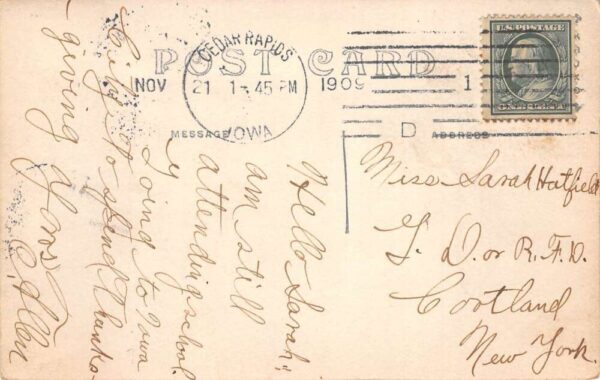 CEDAR RAPIDS
IOWA
NOV 21 1-45 PM 1909
1
D
U.S. POSTAGE
POST CARD
MESSAGE
ADDRESS
Hello Sarah:
am still
attending school.
Going to Iowa
City to spend Thanks-
giving
Miss Sarah Hatfield
D. or R.F.D.
Cortland
New York.